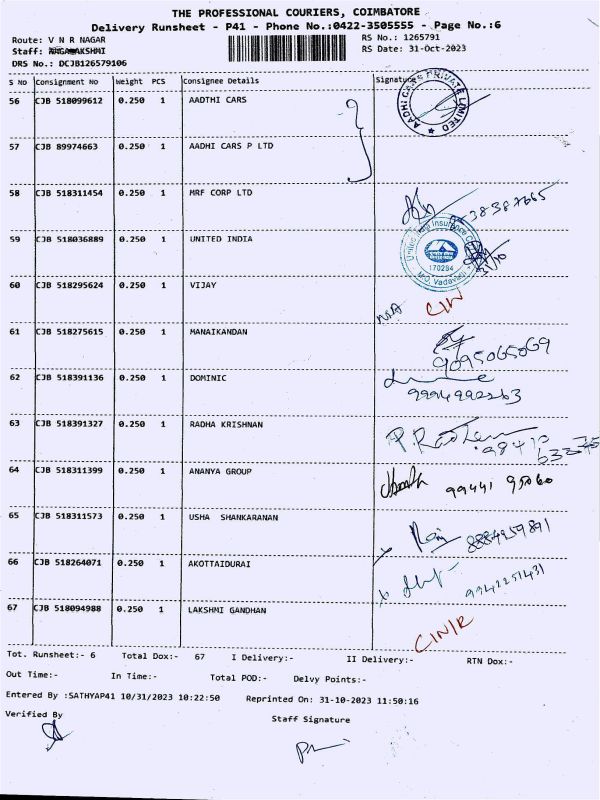 THE PROFESSIONAL COURIERS, COIMBATORE
Delivery Runsheet - P41 - Phone No.:0422-3505555 - Page No.:6
Route: V N R NAGAR
RS No.: 1265791
Staff:
RS Date: 31-Oct-2023
DRS No.: DCJB126579106
S No Consignment No Weight PCS Consignee Details Signature
56 CJB 518099612 0.250 1 AADTHI CARS
AADHI CARS PRIVATE LIMITED
57 CJB 89974663 0.250 1 AADHI CARS P LTD
58 CJB 518311454 0.250 1 MRF CORP LTD
59 CJB 518036889 0.250 1 UNITED INDIA
United India Insurance
170284
M.O. Vadavalli
31/10
60 CJB 518295624 0.250 1 VIJAY
N/A
61 CJB 518275615 0.250 1 MANAIKANDAN
9095065069
62 CJB 518391136 0.250 1 DOMINIC
63 CJB 518391327 0.250 1 RADHA KRISHNAN
64 CJB 518311399 0.250 1 ANANYA GROUP
99441 95060
65 CJB 518311573 0.250 1 USHA SHANKARANAN
66 CJB 518264071 0.250 1 AKOTTAIDURAI
9942251431
67 CJB 518094988 0.250 1 LAKSHMI GANDHAN
Tot. Runsheet:- 6 Total Dox:- 67 I Delivery:- II Delivery:- RTN Dox:-
Out Time:- In Time:- Total POD:- Delvy Points:-
Entered By :SATHYAP41 10/31/2023 10:22:50 Reprinted On: 31-10-2023 11:50:16
Verified By
Staff Signature